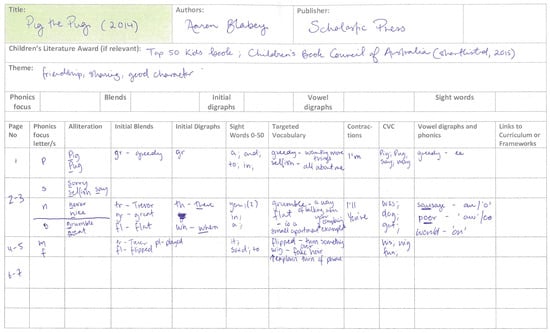 Title: Authors: Publisher:
Pig the Pug (2014) Aaron Blabey Scholastic Press
Children's Literature Award (if relevant): Top 50 Kids book; Children's Book Council of Australia (shortlisted, 2015)
Theme:
friendship, sharing, good character
Phonics focus Blends Initial digraphs Vowel digraphs Sight words
Page No Phonics focus letter/s Alliteration Initial Blends Initial Digraphs Sight Words 0-50 Targeted Vocabulary Contrac-tions CVC Vowel digraphs and phonics Links to Curriculum or Frameworks
1 p Pig Pug gr - greedy gr a, and, to, in, greedy - wanting more things selfish - all about me I'm Pig, Pug, greedy - ee
s Sorry selfish say
2-3 n never nice tr - Trevor gr - great fl - flat th - There wh - when you, (2) in; a; grumble - a way of talking when you complain flat - is a small apartment I'll You're was; dog; get; sausage - au/'o' poor - 'aw'/oo would -
g grumble great
4-5 m f tr - Trevor pl - played fl - flipped it; said; so flipped - turn something over wig - fake hair wig
6-7